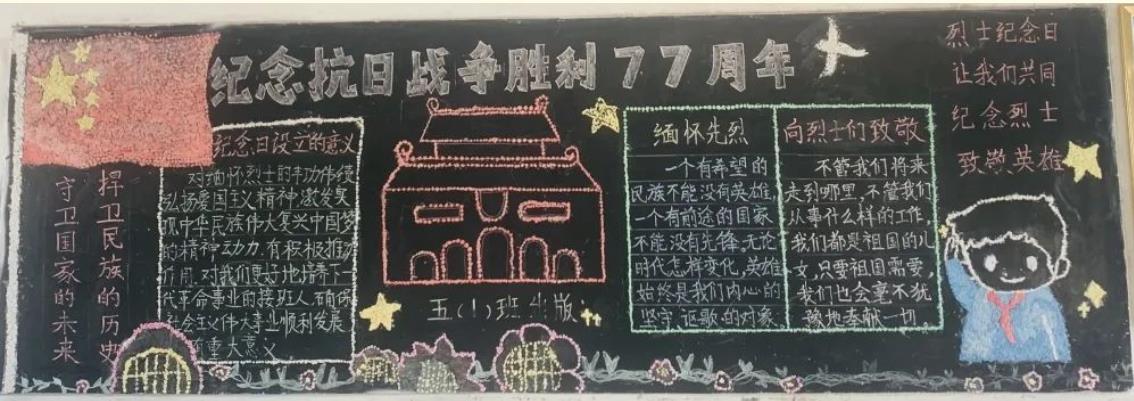 纪念抗日战争胜利77周年
烈士纪念日
让我们共同
纪念烈士
致崇英雄
捍卫民族的历史
守卫国家的未来
纪念日设立的意义
对缅怀烈士的丰功伟绩
弘扬爱国主义精神,激发实
现中华民族伟大复兴中国梦
的精神动力,有积极推动
作用.对我们更好地培育下一
代革命事业的接班人,确保
社会主义伟大事业顺利发展
重大意义
五(1)班出版
缅怀先烈
一个有希望的
民族不能没有英雄,
一个有前途的国家
不能没有先锋,无论
时代怎样变化,英雄
始终是我们内心的
坚守,讴歌的对象
向烈士们致敬
不管我们将来
走到哪里,不管我们
从事什么样的工作,
我们都是祖国的儿
女,只要祖国需要,
我们也会毫不犹
豫地奉献一切.